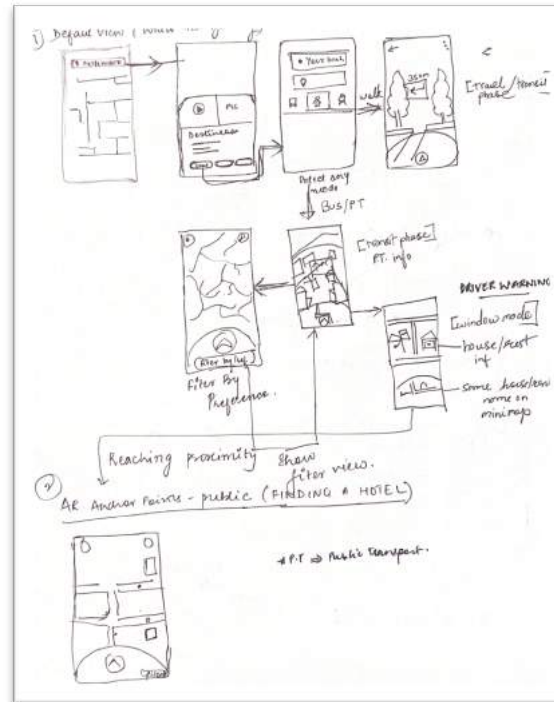 1) Default View (
Destination
Pic
* Your loc
walk
35m
[travel phase/transit]
Select any mode
Bus/PT
[transit phase]
PT. info
DRIVER WARNING
[window mode]
house/rest inf
same house/
name on
minimap
Filter By
Preference.
Reaching proximity
Show
filter view.
2 AR Anchor Points - public (FINDING A HOTEL)
* P.T => Public Transport.